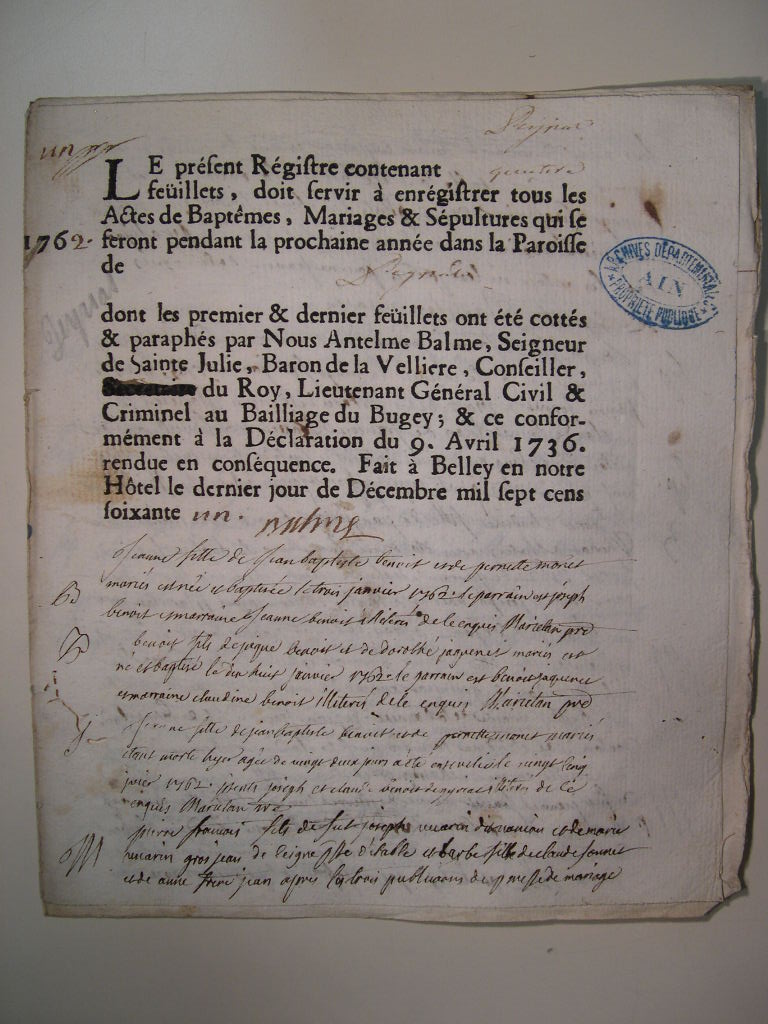 un
LE préſent Régiſtre contenant
feüillets, doit ſervir à enrégiſtrer tous les
Actes de Baptêmes, Mariages & Sépultures qui ſe
1762. feront pendant la prochaine année dans la Paroiſſe
de
ARCHIVES DÉPARTEMENTALES
AIN
PROPRIÉTÉ PUBLIQUE
dont les premier & dernier feüillets ont été cottés
& paraphés par Nous Antelme Balme, Seigneur
de Sainte Julie, Baron de la Velliere, Conſeiller,
du Roy, Lieutenant Général Civil &
Criminel au Bailliage du Bugey; & ce confor-
mément à la Déclaration du 9. Avril 1736.
rendue en conſéquence. Fait à Belley en notre
Hôtel le dernier jour de Décembre mil ſept cens
ſoixante un. Balme
Jeanne fille de Jean baptiste benoit et de pernette monet
mariés est née et baptisée le trois janvier 1762 le parrain est joseph
benoit et marraine Jeanne benoit illiterés de le enquis Marietan
B benoit fils de benoit et de dorothé jaquenet mariés est
né et baptisé le dix huit janvier 1762 le parrain est benoit jaquenet
et marraine claudine benoit illiterés de le enquis Marietan
fille de jean baptiste benoit et de pernette monet mariés
étant morte hyer agée de vingt deux jours a été ensevelie le vingt cinq
janvier 1762. joseph et claude benoit illiterés de ce
enquis Marietan
pierre francois fils de feu joseph et de marie
de et barbe fille de claude
et de anne jean apres les trois publications de messe de mariage